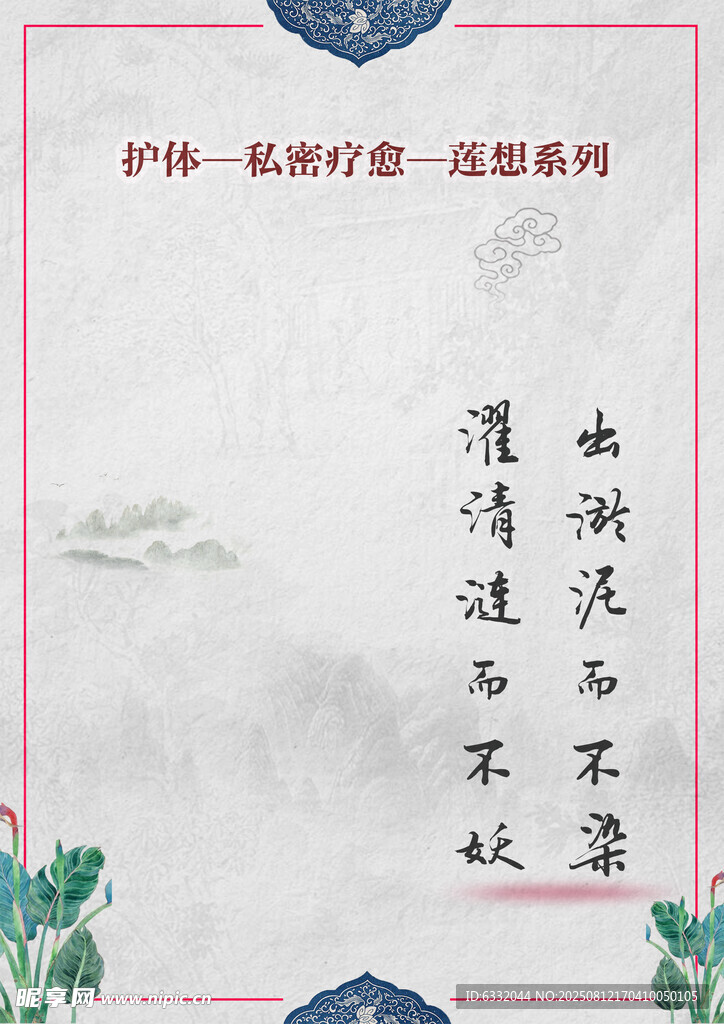 护体—私密疗愈—莲想系列
出淤泥而不染
濯清涟而不妖
昵享网 www.nipic.cn
ID:6332044 NO:20250812170410050105